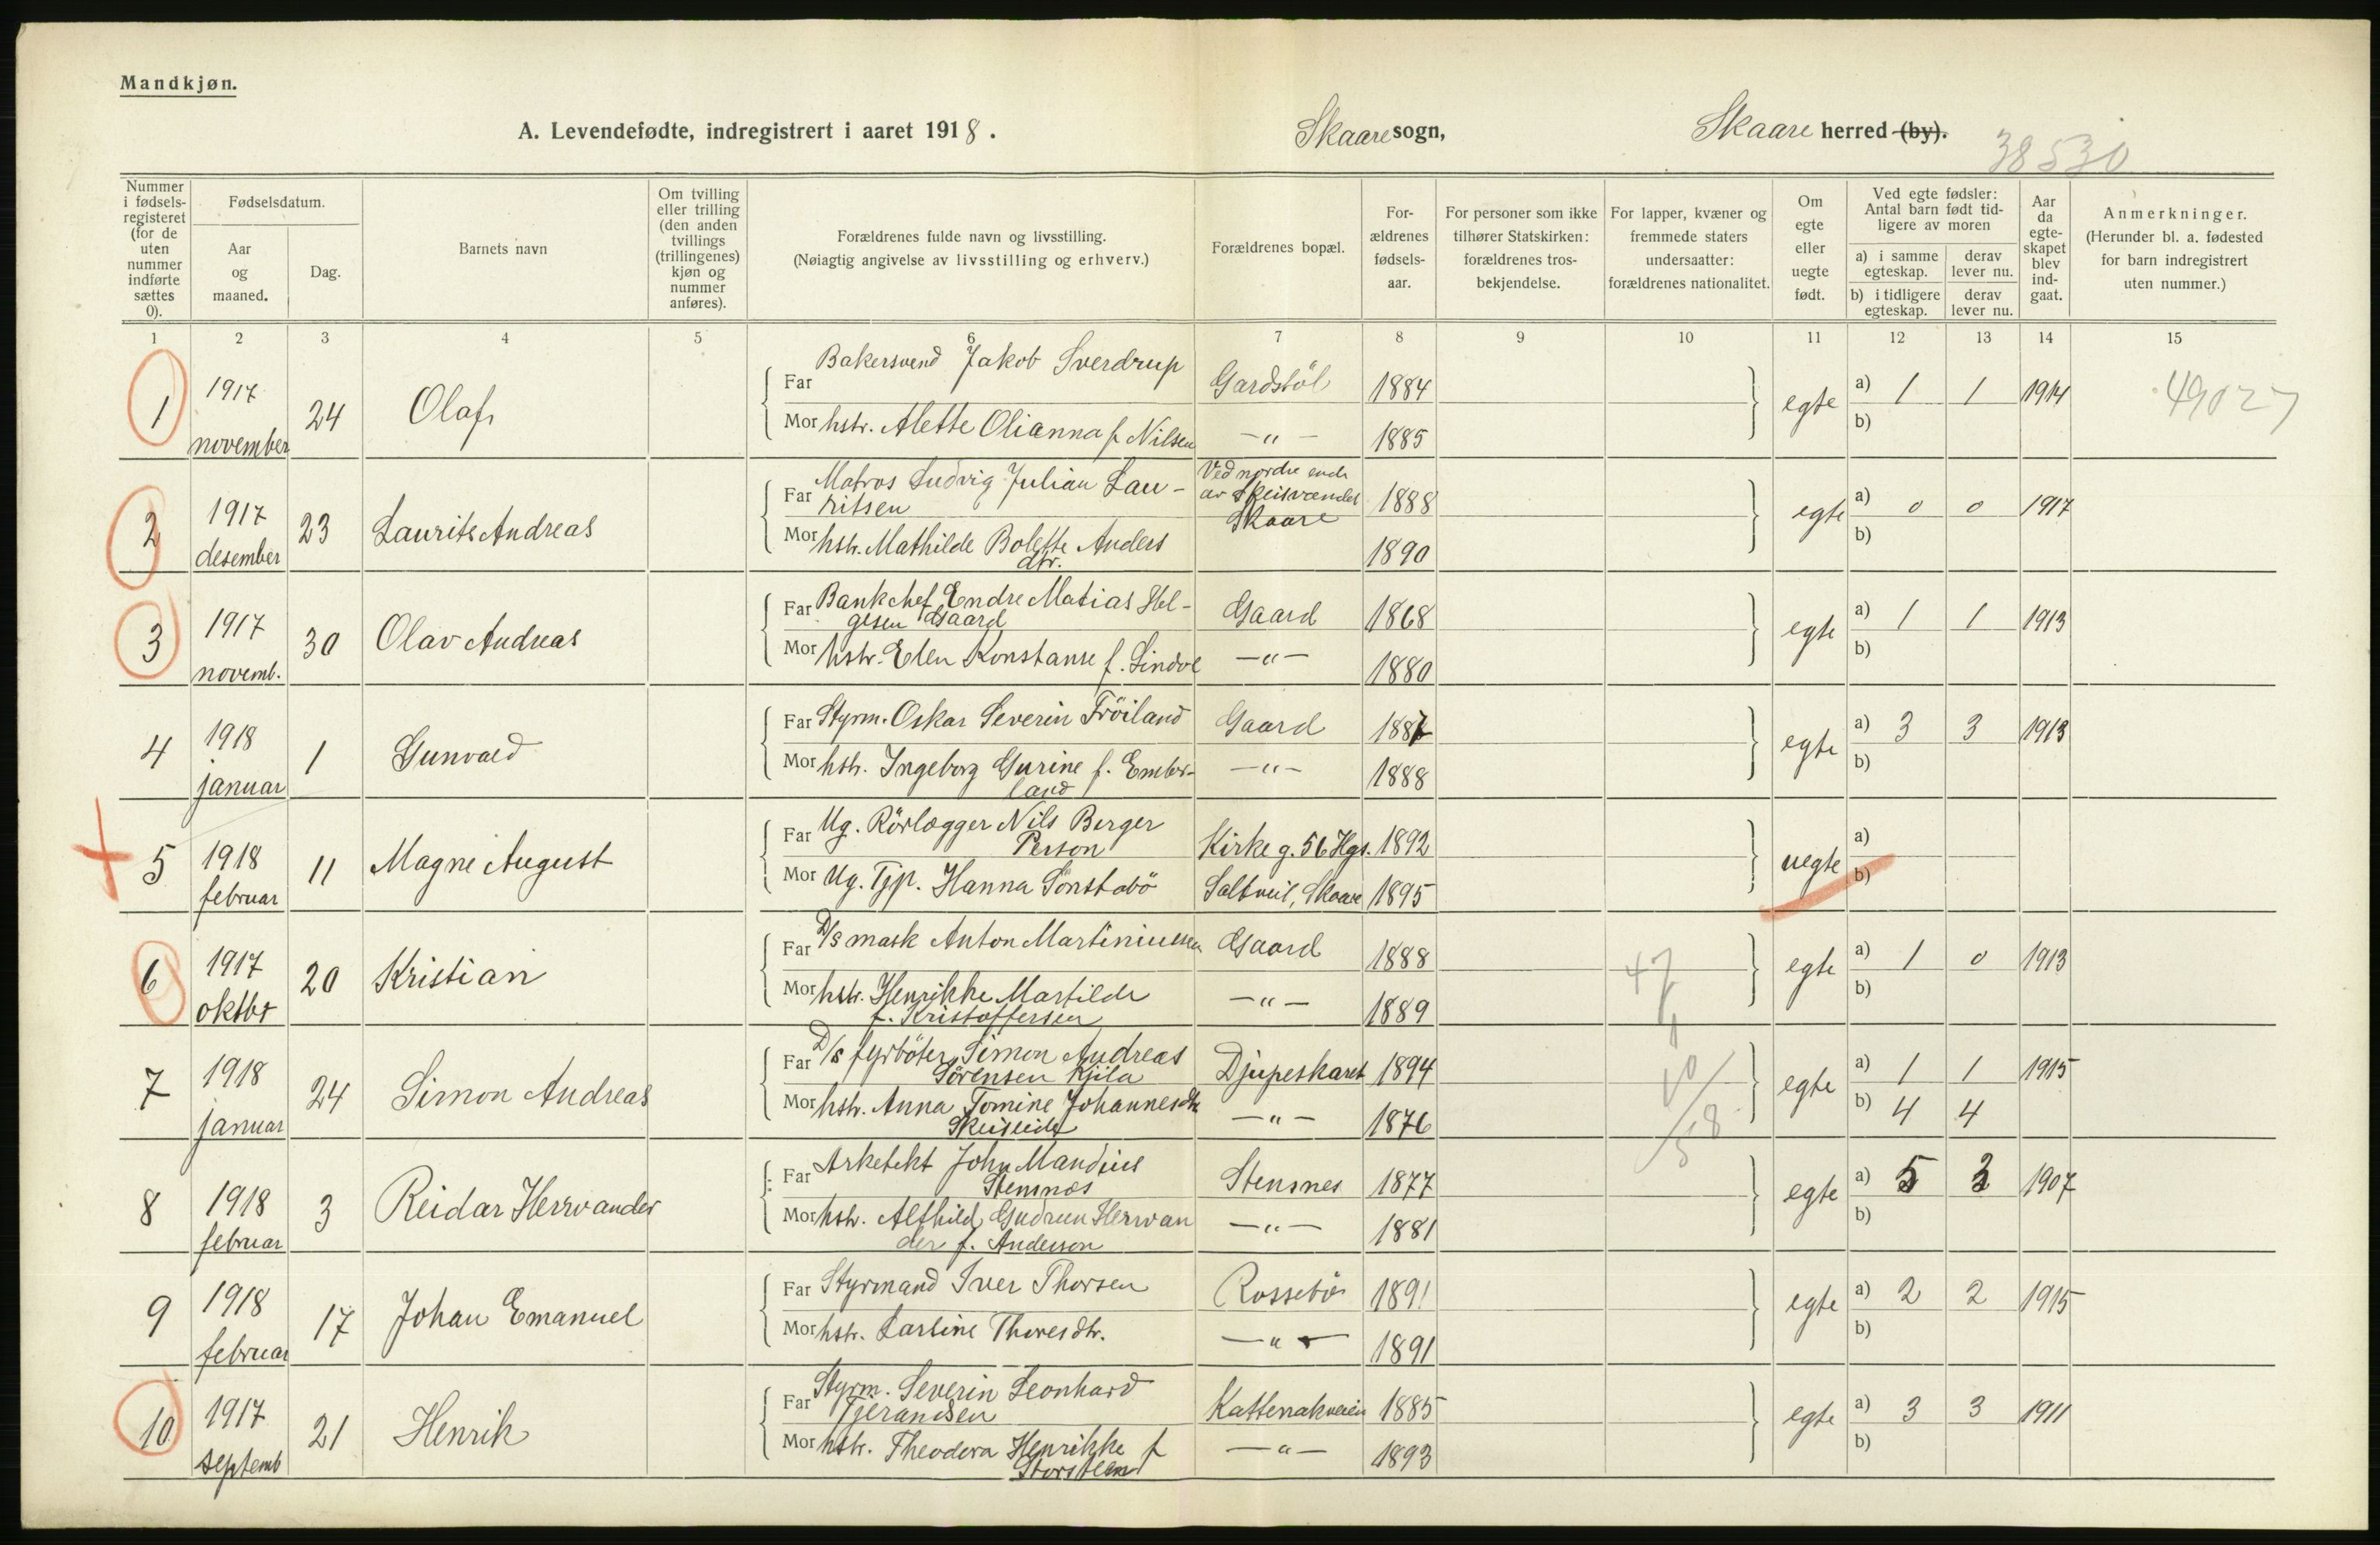 Mandkjøn.
A. Levendefødte, indregistrert i aaret 1918.
Skaare sogn,
Skaare herred (by).
38530
Nummer i fødsels-registeret (for de uten nummer indførte sættes 0).
Fødselsdatum.
Aar og maaned.
Dag.
Barnets navn
Om tvilling eller trilling (den anden tvillings (trillingenes) kjøn og nummer anføres).
Forældrenes fulde navn og livsstilling.
(Nøiagtig angivelse av livsstilling og erhverv.)
Forældrenes bopæl.
For-ældrenes fødsels-aar.
For personer som ikke tilhører Statskirken: forældrenes tros-bekjendelse.
For lapper, kvæner og fremmede staters undersaatter: forældrenes nationalitet.
Om egte eller uegte født.
Ved egte fødsler: Antal barn født tid-ligere av moren
a) i samme egteskap.
derav lever nu.
b) i tidligere egteskap.
derav lever nu.
Aar da egte-skapet blev ind-gaat.
Anmerkninger.
(Herunder bl. a. fødested for barn indregistrert uten nummer.)
1 2 3 4 5 6 7 8 9 10 11 12 13 14 15
1 1917 november 24 Olaf
Far Bakersvend Jakob Sverdrup Gardstöl 1884
Mor hstr. Alette Olianna f. Nilsen -"- 1885
egte a) 1 1 1914
b)
49027
2 1917 desember 23 Laurits Andreas
Far Matros Ludvig Julian Lau-
ritsen Ved nordre ende av Skeisvandet Skaare 1888
Mor hstr. Mathilde Bolette Anders
dtr. 1890
egte a) 0 0 1917
b)
3 1917 novemb. 30 Olav Andreas
Far Bankchef Endre Matias Hel-
gesen Gaard Gaard 1868
Mor hstr. Elen Konstanse f. Lindöe -"- 1880
egte a) 1 1 1913
b)
4 1918 januar 1 Gunvald
Far Styrm. Oskar Severin Fröiland Gaard 1887
Mor hstr. Ingeborg Gurine f. Ember-
land -"- 1888
egte a) 3 3 1913
b)
5 1918 februar 11 Magne August
Far Ug. Rörlægger Nils Berger
Person Kirkeg. 56 Hgs. 1892
Mor Ug. Tjp. Hanna Sönstabö Saltveit, Skaare 1895
uegte a)
b)
6 1917 oktbr 20 Kristian
Far D/s mask Anton Martiniussen Gaard 1888
Mor hstr. Henrikke Martilde
f. Kristoffersen -"- 1889
47
egte a) 1 0 1913
b)
7 1918 januar 24 Simon Andreas
Far D/s fyrböter Simon Andreas
Sörensen Kjila Djupeskaret 1894
Mor hstr. Anna Tomine Johannesdtr
Skeiseid -"- 1876
egte a) 1 1 1915
b) 4 4
8 1918 februar 3 Reidar Herrvander
Far Arketekt John Mandius
Stensnes Stensnes 1877
Mor hstr. Alfhild Gudrun Herrvan
der f. Anderson -"- 1881
egte a) 5 3 1907
b)
9 1918 februar 17 Johan Emanuel
Far Styrmand Iver Thorsen Rossebö 1891
Mor hstr. Lartine Thoresdtr. -"- 1891
egte a) 2 2 1915
b)
10 1917 septemb 21 Henrik
Far Styrm. Severin Leonhard
Tjerandsen Kattenakveien 1885
Mor hstr. Theodora Henrikke f
Storsteen -"- 1893
egte a) 3 3 1911
b)